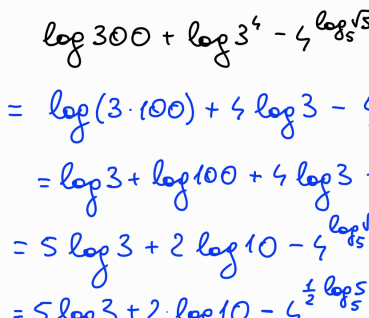 log 300 + log 3⁴ - 4^(log₅ √5
= log(3·100) + 4 log 3 - 4
= log 3 + log 100 + 4 log 3 -
= 5 log 3 + 2 log 10 - 4^(log₅ √
= 5 log 3 + 2·log 10 - 4^(½ log₅ 5